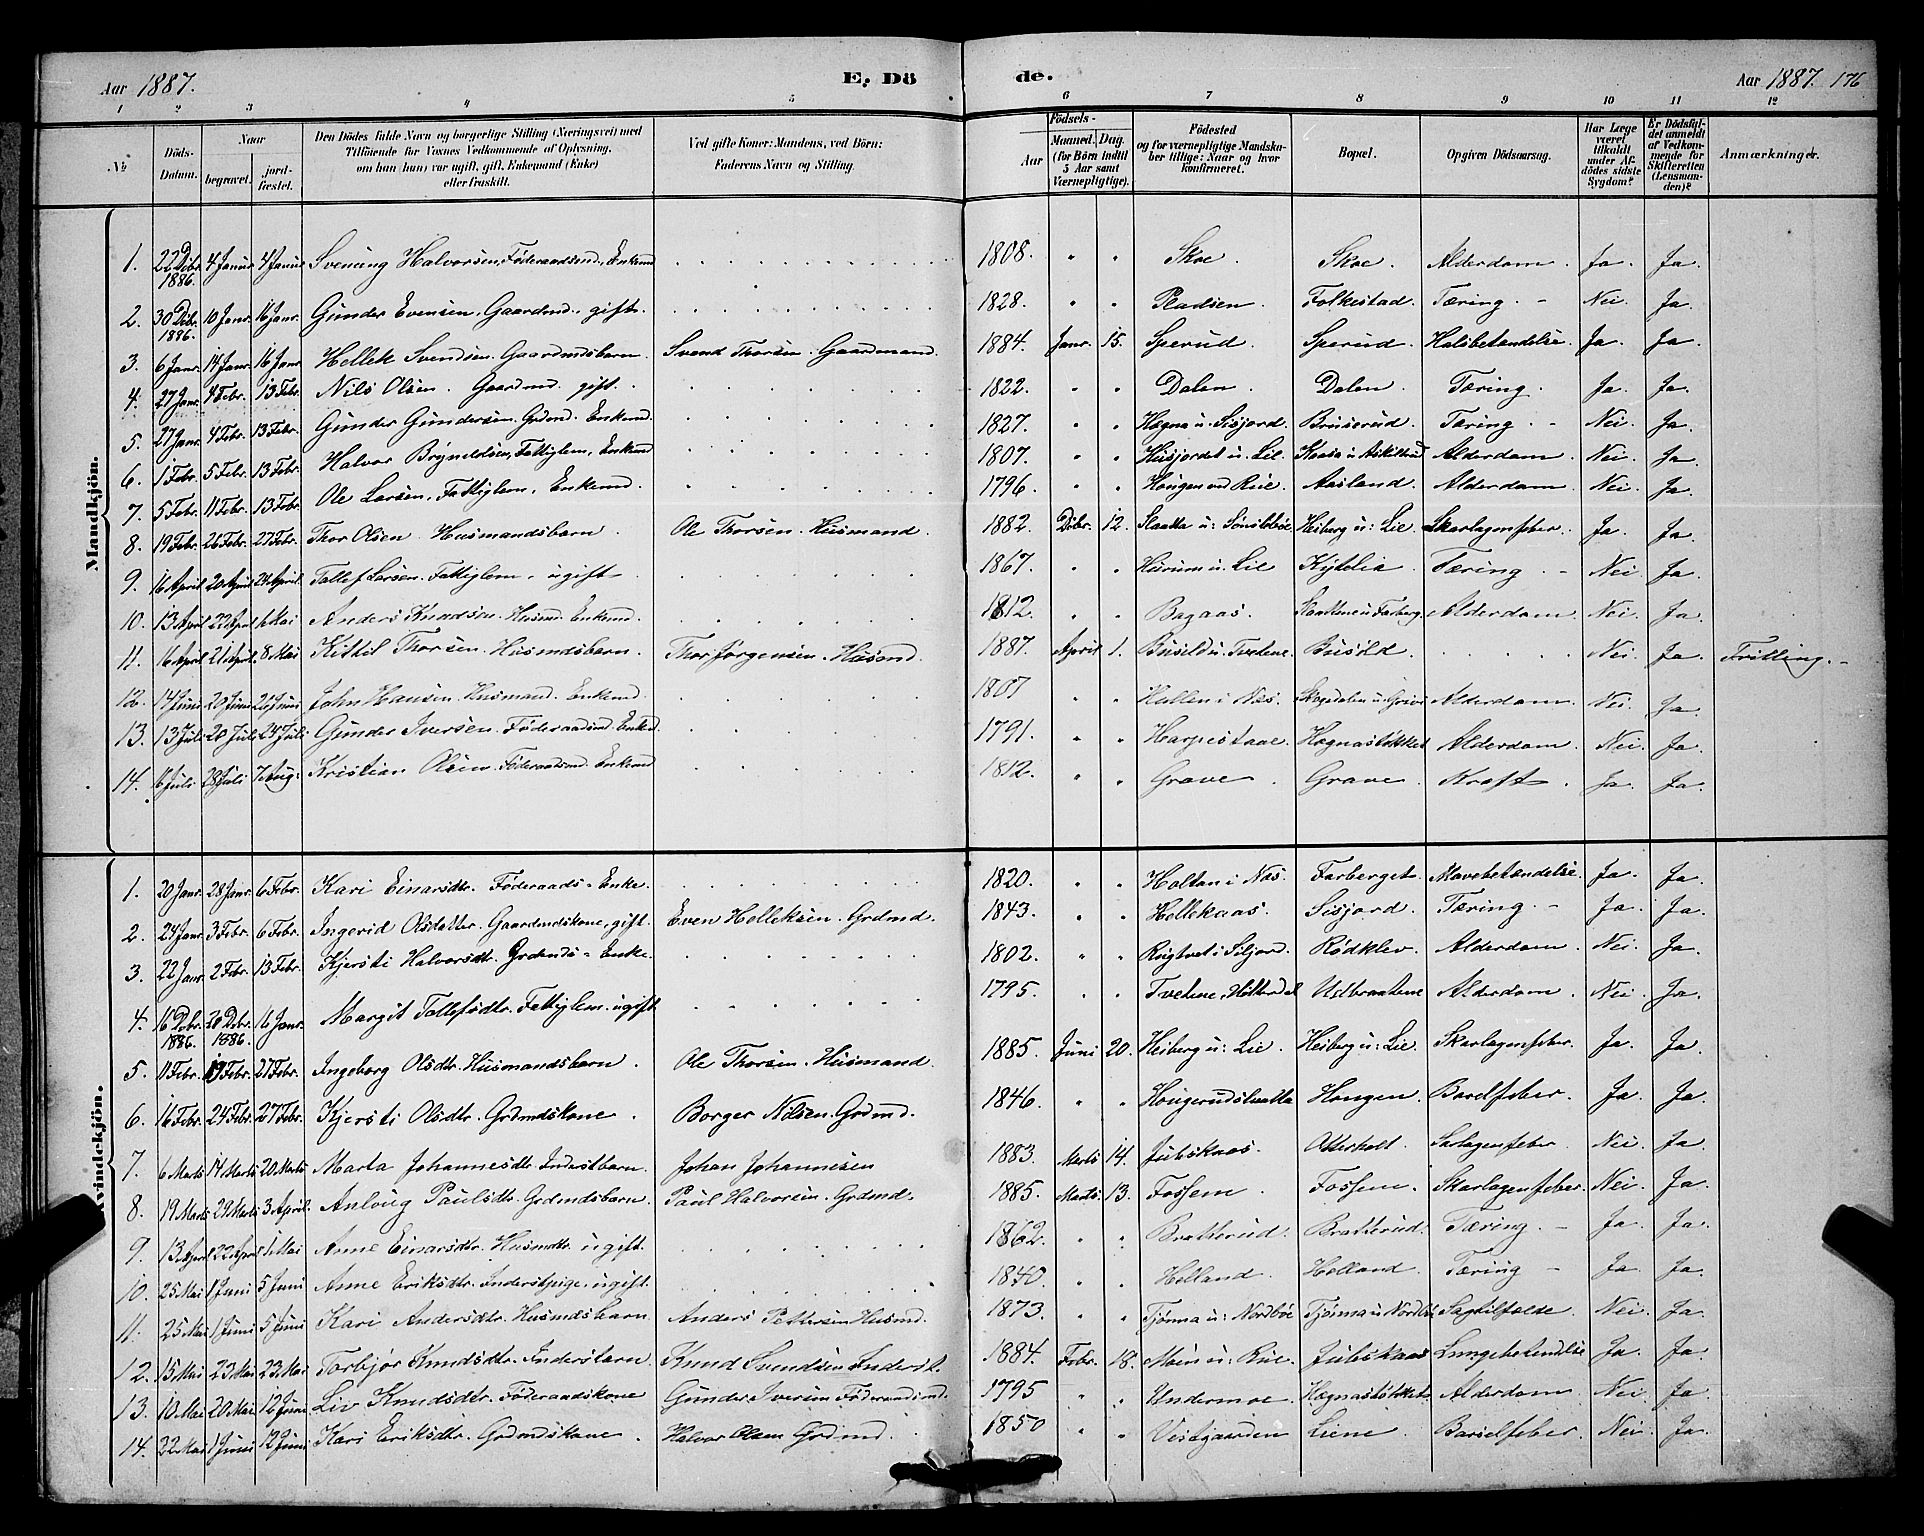 Aar 1887.
E. Dö
de.
Aar 1887. 176
1 2 3 4 5 6 7 8 9 10 11 12
№
Döds-Datum.
Naar begravet. jordfæstet.
Den Dödes fulde Navn og borgerlige Stilling (Næringsvei) med Tilföiende for Voxnes Vedkommende af Oplysning, om han (hun) var ugift, gift, Enkemand (Enke) eller fraskilt.
Ved gifte Koner: Mandens, ved Börn: Faderens Navn og Stilling.
Födsels-
Aar Maaned. Dag. (for Börn indtil 5 Aar samt Værnepligtige).
Födested og for værnepligtige Mandskaber tillige: Naar og hvor konfirmeret.
Bopæl.
Opgiven Dödsaarsag.
Har Læge været tilkaldt under Afdödes sidste Sygdom?
Er Dödsfaldet anmeldt af Vedkommende for Skifteretten (Lensmanden)?
Anmærkninger.
Mandkjön.
1. 22 Dcbr. 1886. 4 Januar 4 Januar Svenung Halvorsen, Föderaadsmd., Enkemd 1808. " " Skoe. Skoe. Alderdom. Ja. Ja.
2. 30 Dcbr. 1886. 10 Janr. 16 Janr. Gunder Evensen, Gaardmd., gift. 1828. " " Pladsen. Folkestad. Tæring. - Nei. Ja.
3. 6 Janr. 14 Janr. 16 Janr Hellek Svendsen. Gaardmdsbarn. Svend Thorsen. Gaardmand. 1884. Janr. 15. Sperud. Sperud. Halsbetændelse. Ja. Ja.
4. 27 Janr. 4 Febr. 13 Febr. Nils Olsen. Gaardmd. gift. 1822. " " Dalen. Dalen. Tæring. Ja. Ja.
5. 27 Janr. 4 Febr. 13 Febr. Gunder Gundersen. Grdmd. Enkemd. 1827. " " Hogna u. Sisjord. Bruserud. Tæring. - Nei. Ja.
6. 1 Febr. 5 Febr. 13 Febr. Halvor Bryneldsen, Fattiglem, Enkemd 1807. " " Husjordet u. Lie. Kaasa u. Askildrud Alderdom. Nei. Ja.
7. 5 Febr. 11 Febr. 13 Febr. Ole Larsen, Fattiglem, Enkemd. 1796. " " Haugen ved Rue. Aasland. Alderdom. Nei. Ja.
8. 19 Febr. 26 Febr. 27 Febr. Thor Olsen. Husmandsbarn. Ole Thorsen. Husmand. 1882. Dcbr. 12. Slaatta u: Heiberg u: Lie. Skarlagensfeber. Ja. Ja.
9. 16 April 20 April 24 April Tollef Larsen. Fattiglem, ugift. 1867. " " Hurum u. Lie Kjitelia. Tæring. - Nei Ja.
10. 13 April 22 April 1 Mai Anders Knudsen. Husmd. Enkemd. 1812. " " Bagaas. Slaattene u. Farberg. Alderdom. Nei. Ja.
11. 16 April 21 April 8 Mai Kittil Thorsen. Husmdsbarn. Thor Jørgensen. Husmd. 1887. April 1. Busuld u. Tvetene. Busöld. Nei. Ja. Tvilling. -
12. 14 Juni 20 Juni 21 Juni John Hansen. Husmand. Enkemd. 1807 " " Hullen i Næs. Skogsdalen u. Alderdom. Nei. Ja.
13. 13 Juli 20 Juli 24 Juli Gunder Iversen. Föderaadsmd. Enkemd. 1791. " " Harpestaae. Hognastokket Alderdom. Nei. Ja.
14. 16 Juli 28 Juli 7 Aug: Kristian Olsen. Föderaadsmd. Enkemd 1812. " " Grave. Grave. Kræft. Ja. Ja.
Kvindekjön.
1. 20 Janr. 28 Janr. 6 Febr. Kari Einarsdtr. Föderaads-Enke. 1820. " " Holtan i Næs. Farberget. Mavebetændelse. Ja. Ja.
2. 24 Janr. 3 Febr. 6 Febr. Ingerid Olsdatter. Gaardmdskone, gift. Even Helleksen. Grdmd. 1843. " " Hellekaas. Sisjord. Tæring. - Ja. Ja.
3. 22 Janr. 2 Febr. 13 Febr. Kjersti Halvorsdtr. Grdmds-Enke. 1802. " " i Siljord. Rödklev. Alderdom. Nei. Ja.
4. 16 Dcbr. 1886. 20 Dcbr. 1886. 16 Janr. Margit Tollefsdtr. Fattiglem. ugift. 1795. " " Tvetene, Hitterdal Udbraatene Alderdom. Nei. Ja.
5. 11 Febr. 19 Febr. 27 Febr. Ingeborg Olsdtr. Husmandsbarn. Ole Thorsen. Husmand. 1885. Juni 20. Heiberg u: Lie. Heiberg u: Lie. Skarlagensfeber. Ja. Ja.
6. 16 Febr. 24 Febr. 27 Febr. Kjersti Olsdtr. Grdmdskone. Borger Nilsen. Grdmd. 1846. " " Hougerudslaatta Haugen. Barselfeber. Ja. Ja.
7. 6 Marts 14 Marts 20 Marts Marta Johannesdtr. Inderstbarn. Johan Johannesen 1883. Marts 14. Juliskaas. Otterholt. Sarlagensfeber. Nei. Ja.
8. 19 Marts 29 Marts 3 April. Anlaug Paulsdtr. Grdmdsbarn. Paul Halvorsen. Grdmd. 1885. Marts. 13. Fossem. Fossem. Skarlagensfeber. Nei. Ja.
9. 13 April 22 April 1 Mai Anne Einarsdtr. Husmdtr. ugift. 1862. " " Bratterud. Bratterud. Tæring. - Ja. Ja.
10. 25 Mai 1 Juni 5 Juni Anne Eriksdtr. Inderstpige, ugift. 1840. " " Helland. Helland. Tæring - Ja. Ja.
11. 25 Mai 1 Juni 5 Juni Kari Andersdtr. Husmdsbarn. Anders Pettersen Husmd. 1873. " " Tjönna u: Nordböe Tjönna u: Nordböe Nei. Ja.
12. 15 Mai 23 Mai 23 Mai Torbjør Knudsdtr. Inderstbarn. Knud Svendsen Inderst. 1884. Febr. 18. Moen u: Rue. Juliskaas Lungebetændelse Ja. Ja.
13. 10 Mai 20 Mai 12 Juni Liv Knudsdtr. Föderaadskone Gunder Iversen Föderaadsmd. 1795 " " Undermoe. Hognastokket. Alderdom. Nei. Ja.
14. 22 Mai 1 Juni 12 Juni Kari Eriksdtr. Grdmdskone. Halvor Olsen Grdmd. 1850 " " Vestgaarden Liene. Barselfeber. Nei. Ja.